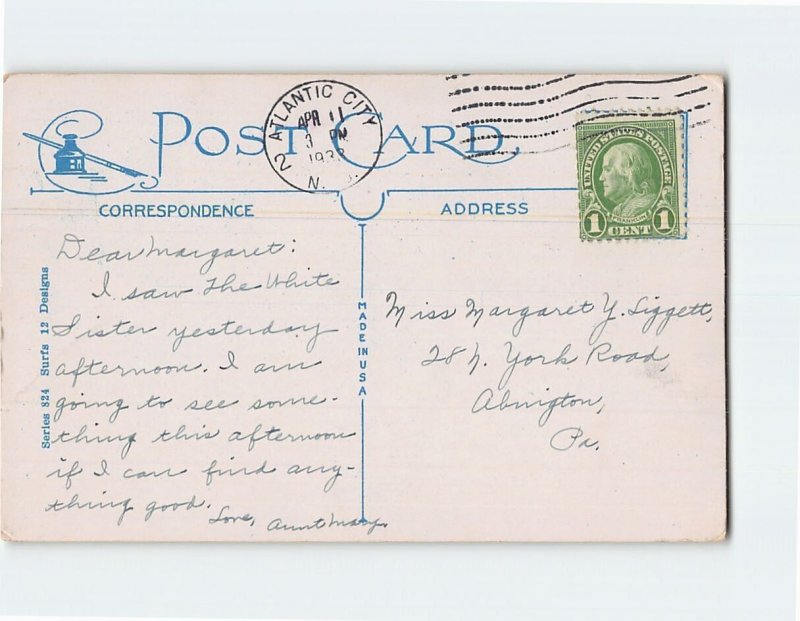 POST CARD
2 ATLANTIC CITY
APR 11
3 PM
N. J.
UNITED STATES POSTAGE
FRANKLIN
1 CENT 1
CORRESPONDENCE
ADDRESS
Series 824 Surfs 12 Designs
MADE IN USA
Dear Margaret:
I saw The White
Sister yesterday
afternoon. I am
going to see some-
thing this afternoon
if I can find any-
thing good.
Love, Aunt Mary.
Miss Margaret Y. Liggett,
28 N. York Road,
Abington,
Pa.